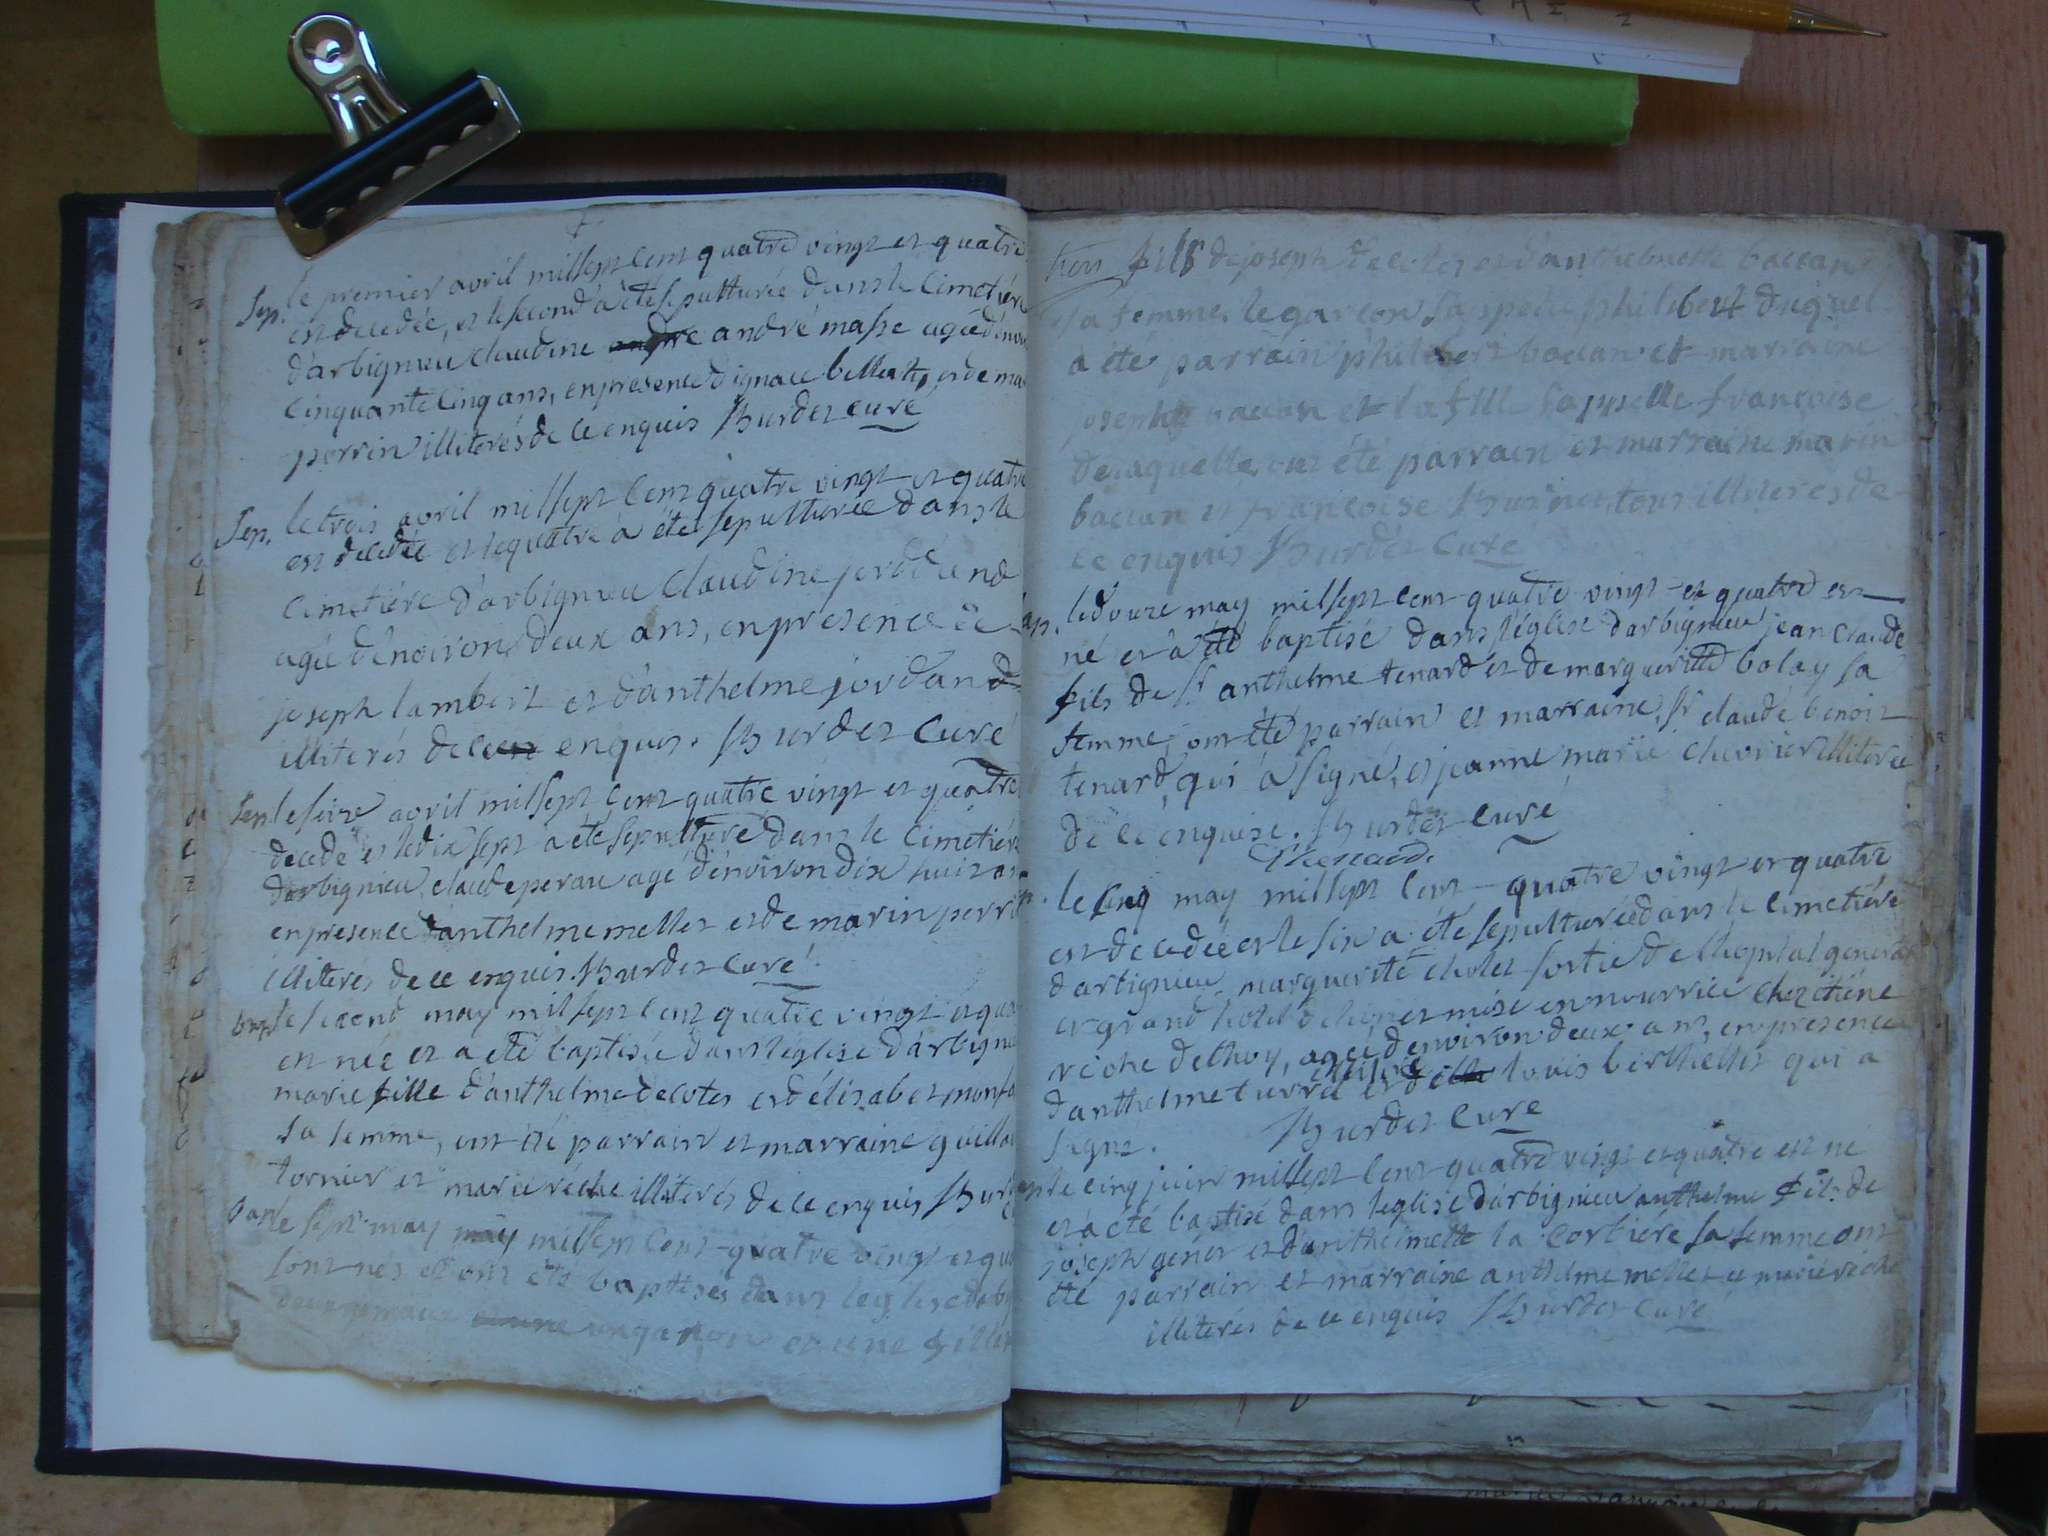 Sep. le premier avril mil sept cent quatre vingt et quatre
est decedée, et le second à été sepulturée dans le cimetiére
d'arbignieu claudine andré masse agée d'environ
cinquante cinq ans, en presence d'ignace bellert, et de ma
perrin illiterés de ce enquis hurdet curé
Sep. le trois avril mil sept cent quatre vingt et quatre
est decedée et le quatre à été sepulturée dans le
cimetiére d'arbignieu claudine jordand
agée d'environ deux ans, en presence de
joseph lambert et d'anthelme jordand
illiterés de ce enquis. hurdet curé
Sep. le seize avril mil sept cent quatre vingt et quatre
decedé et le dix sept a été sepulturé dans le cimetiére
d'arbignieu claude perau agé d'environ dix huit ans
en presence d'anthelme mellet et de marin perrin
illiterés de ce enquis. hurdet curé
bap. le second may mil sept cent quatre vingt et quatre
est née et a été baptisée dans l'église d'arbignieu
marie fille d'anthelme decotes et d'élisabet monfa
sa femme, ont été parrain et marraine guillau
tornier et marie réche illiterés de ce enquis hurdet
bap. le sept may may mil sept cent quatre vingt et qua
sont nés et ont été baptisés dans leglise d'arb
deux jumeaux un garçon et une fille
fils de joseph decotes et d'anthelmette baccan
sa femme, le garcon s'appelle philibert duquel
a été parrain philibert baccan et marraine
baccan et la fille s'appelle françoise
de laquelle ont été parrain et marraine marin
baccan et françoise hurdet tous illiterés de
ce enquis hurdet curé
bap. le douze may mil sept cent quatre vingt et quatre est
né et à été baptisé dans l'église d'arbignieu jean claude
fils de sr anthelme tenard et de marguerite bolay sa
femme, ont été parrain et marraine, sr claude benoit
tenard, qui à signé, et jeanne marie chevrier illiterée
de ce enquise. hurdet curé
Thenard.
le cinq may mil sept cent quatre vingt et quatre
est decedée et le six a été sepulturée dans le cimetiére
d'arbignieu marguerite cholet sortie de l'hopital general
et grand hotel de lion et mise en nourrice chez etiéne
réche de thoy, agée d'environ deux ans, en presence
d'anthelme turrel illiteré et de louis berthellet qui a
signé. hurdet curé
le cinq juin mil sept cent quatre vingt et quatre est né
et a été baptisé dans leglise d'arbignieu anthelme fils de
joseph géner et d'anthelmette la corbiére sa femme ont
été parrain et marraine anthelme mellet et marie réche
illiterés de ce enquis hurdet curé